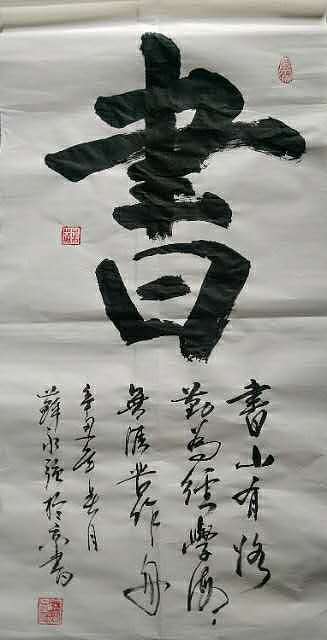 書
書山有路
勤為徑學海
無涯苦作舟
辛丑年春月
薛永强於京書